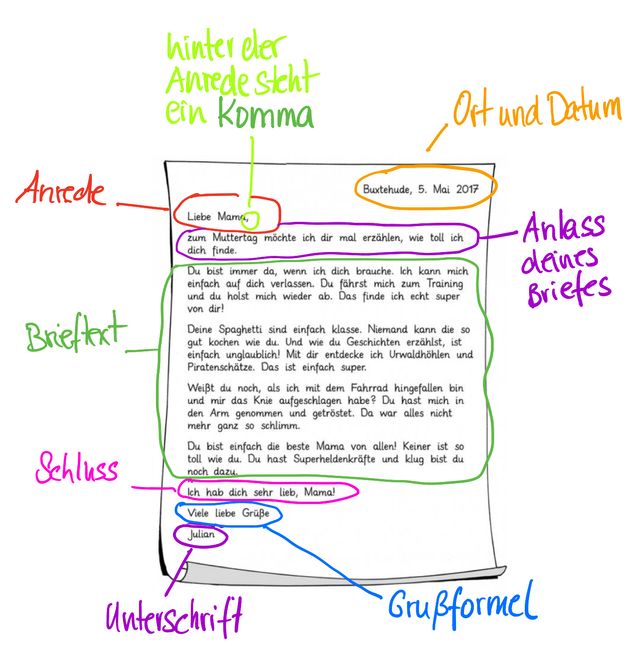 hinter der
Anrede steht
ein Komma
Ort und Datum
Anrede
Buxtehude, 5. Mai 2017
Liebe Mama,
zum Muttertag möchte ich dir mal erzählen, wie toll ich
dich finde.
Anlass
deines
Briefes
Brieftext
Du bist immer da, wenn ich dich brauche. Ich kann mich
einfach auf dich verlassen. Du fährst mich zum Training
und du holst mich wieder ab. Das finde ich echt super
von dir!
Deine Spaghetti sind einfach klasse. Niemand kann die so
gut kochen wie du. Und wie du Geschichten erzählst, ist
einfach unglaublich! Mit dir entdecke ich Urwaldhöhlen und
Piratenschätze. Das ist einfach super.
Weißt du noch, als ich mit dem Fahrrad hingefallen bin
und mir das Knie aufgeschlagen habe? Du hast mich in
den Arm genommen und getröstet. Da war alles nicht
mehr ganz so schlimm.
Du bist einfach die beste Mama von allen! Keiner ist so
toll wie du. Du hast Superheldenkräfte und klug bist du
noch dazu.
Schluss
Ich hab dich sehr lieb, Mama!
Viele liebe Grüße
Julian
Unterschrift
Grußformel